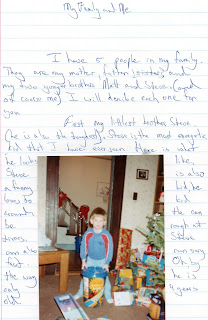 My Family and Me
I have 5 people in my family.
They are my mother, father, (sister), and
my two younger brothers Matt and Steve (and
of course me) I will describe each one for
you
First my littlest brother Steve.
(he is also the youngest). Steve is the most energetic
kid that I have ever seen. Here is what
he looks like,
Steve is also
a funny kid, he
loves to kid
around he can
be rough at
times, Steve
can also run very
fast. Oh by
the way he is
only 4 years
old.